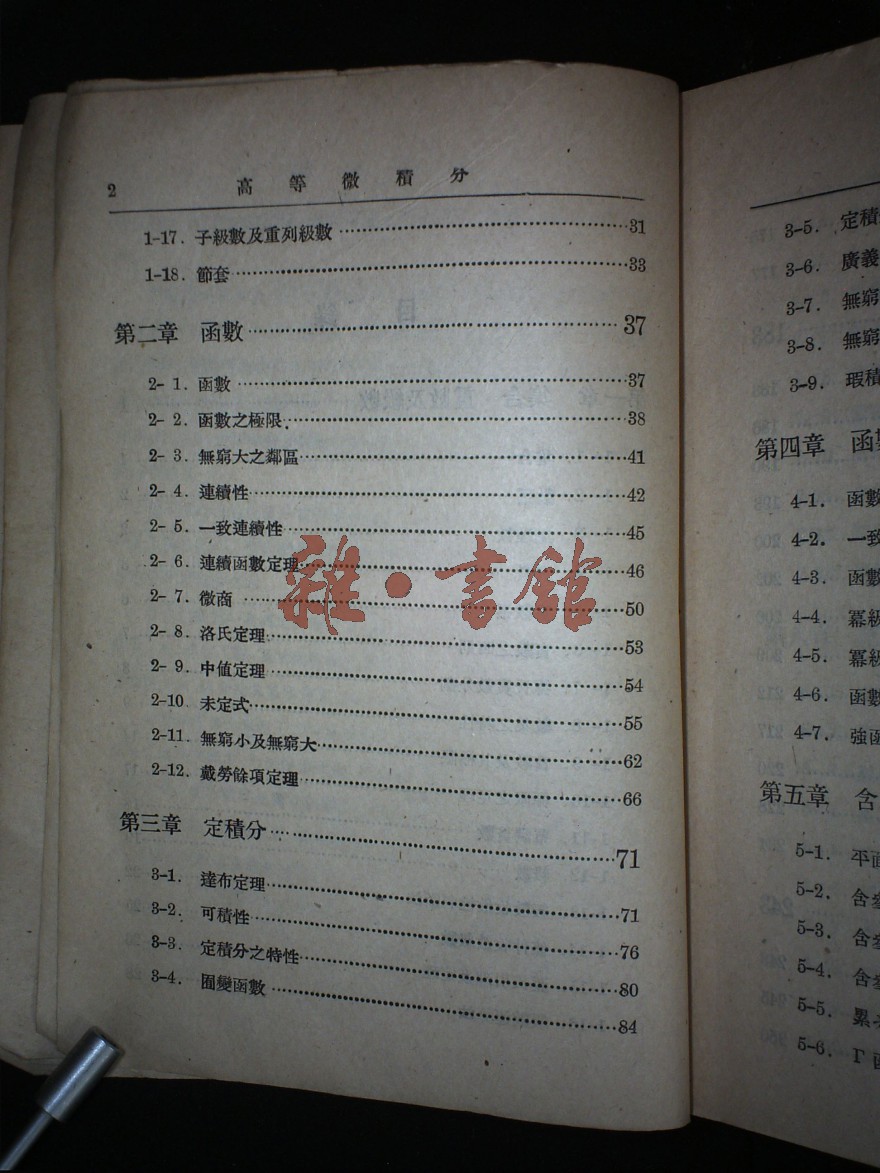 2 高等微積分
1-17. 子級數及重列級數 31
1-18. 節套 33
第二章 函數 37
2- 1. 函數 37
2- 2. 函數之極限 38
2- 3. 無窮大之鄰區 41
2- 4. 連續性 42
2- 5. 一致連續性 45
2- 6. 連續函數定理 46
2- 7. 微商 50
2- 8. 洛氏定理 53
2- 9. 中値定理 54
2-10. 未定式 55
2-11. 無窮小及無窮大 62
2-12. 戴勞餘項定理 66
第三章 定積分 71
3-1. 達布定理 71
3-2. 可積性 76
3-3. 定積分之特性 80
3-4. 囿變函數 84
雜·書館
3-5. 定積
3-6. 廣義
3-7. 無窮
3-8. 無窮
3-9. 瑕積
第四章 函
4-1. 函數
4-2. 一致
4-3. 函數
4-4. 冪級
4-5. 冪級
4-6. 函數
4-7. 強函
第五章 含
5-1. 平面
5-2. 含參
5-3. 含參
5-4. 含參
5-5. 累
5-6. Γ函